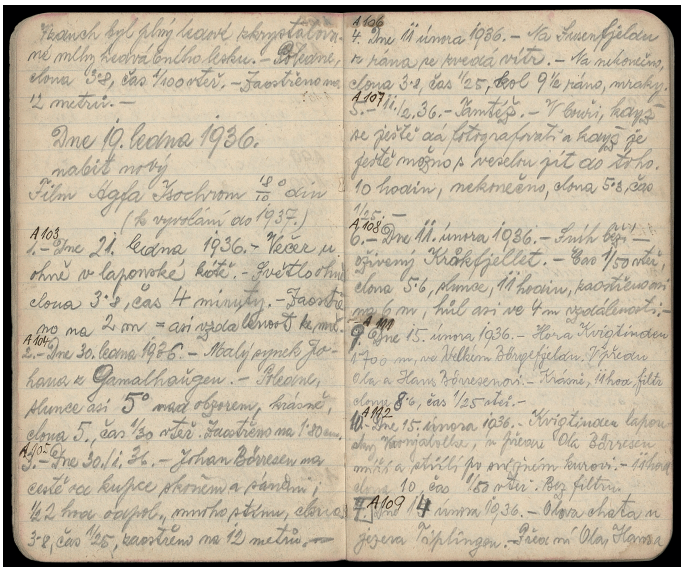 vzduch byl plný ledové zkrystalova-
né mlhy hedvábního lesku. – Poledne,
clona 3·8, čas 1/100 vteř. – Zaostřeno na
12 metrů. –
Dne 19. ledna 1936.
nabit nový
Film Agfa Isochrom 18/10° din
(k vyvolání do 1937)
A103
1. – Dne 21. ledna 1936. – Večer u
ohně v laponské kótě. – Světlo ohně
clona 3·8, čas 4 minuty. – Zaostře
no na 2 m = asi vzdálenost
A104
2. – Dne 30. ledna 1936. – Malý synek Jo-
hana z Gamalhaugen. – Poledne,
slunce asi 5° nad obzorem, krásně,
clona 5., čas 1/30 vteř. Zaostřeno na 1·80 cm.
A105
3. – Dne 30./1. 36. – Johan Börresen na
cestě od kupce skořem a saněmi;
1/2 2 hod odpol., mnoho stínu, clona
3·8, čas 1/25, zaostřeno na 12 metrů. –
A106
4. Dne 11 února 1936. – Na
z rána se zvedá vítr. – Na nekonečno,
clona 3·8, čas 1/25, kol 9 1/2 ráno, mraky.
A107
5. – 11./2. 36. – Tamtéž. – V bouři, když
se ještě dá fotografovati a když je
ještě možno s veselou jít do toho.
10 hodin, nekonečno, clona 5·8, čas
1/25. –
A108
6. – Dne 11. února 1936. – Sníh běží –
oživený Kråkfjellet. – Čas 1/50 vteř,
clona 5·6, slunce, 11 hodin, zaostřeno asi
na 6 m, hůl asi ve 4 m vzdálenosti. –
A111
9. Dne 15. února 1936. – Hora Kvigtinden
1700 m, ve Velkém Börgefjeldu. V předu
Ola a Hans Börresenovi. – Krásně, 11 hod filtr
clona 8·6, čas 1/25 vteř. –
A112
10. – Dne 15. února 1936. – Kvigtinden
v předu Ola Börresen
střílí po
clona 10, čas 1/50 vteř. Bez filtru.
A109
7 Dne 14 února 1936. – Olova chata u
jezera Tiplingen. – Před ní Ola, Hanna